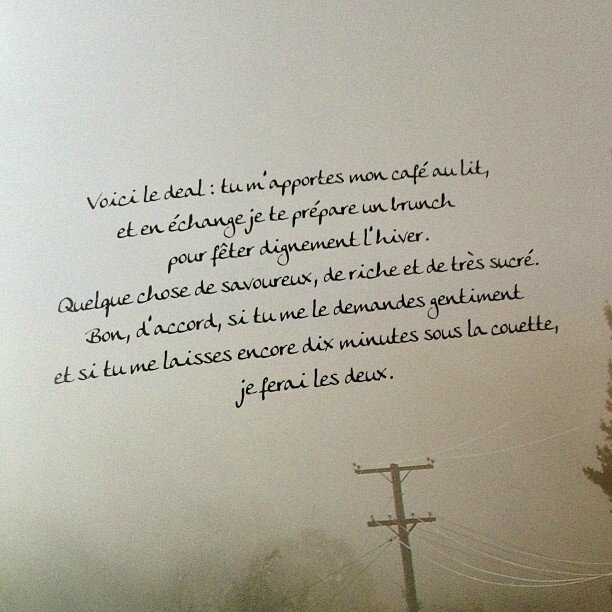 Voici le deal : tu m'apportes mon café au lit,
et en échange je te prépare un brunch
pour fêter dignement l'hiver.
Quelque chose de savoureux, de riche et de très sucré.
Bon, d'accord, si tu me le demandes gentiment
et si tu me laisses encore dix minutes sous la couette,
je ferai les deux.